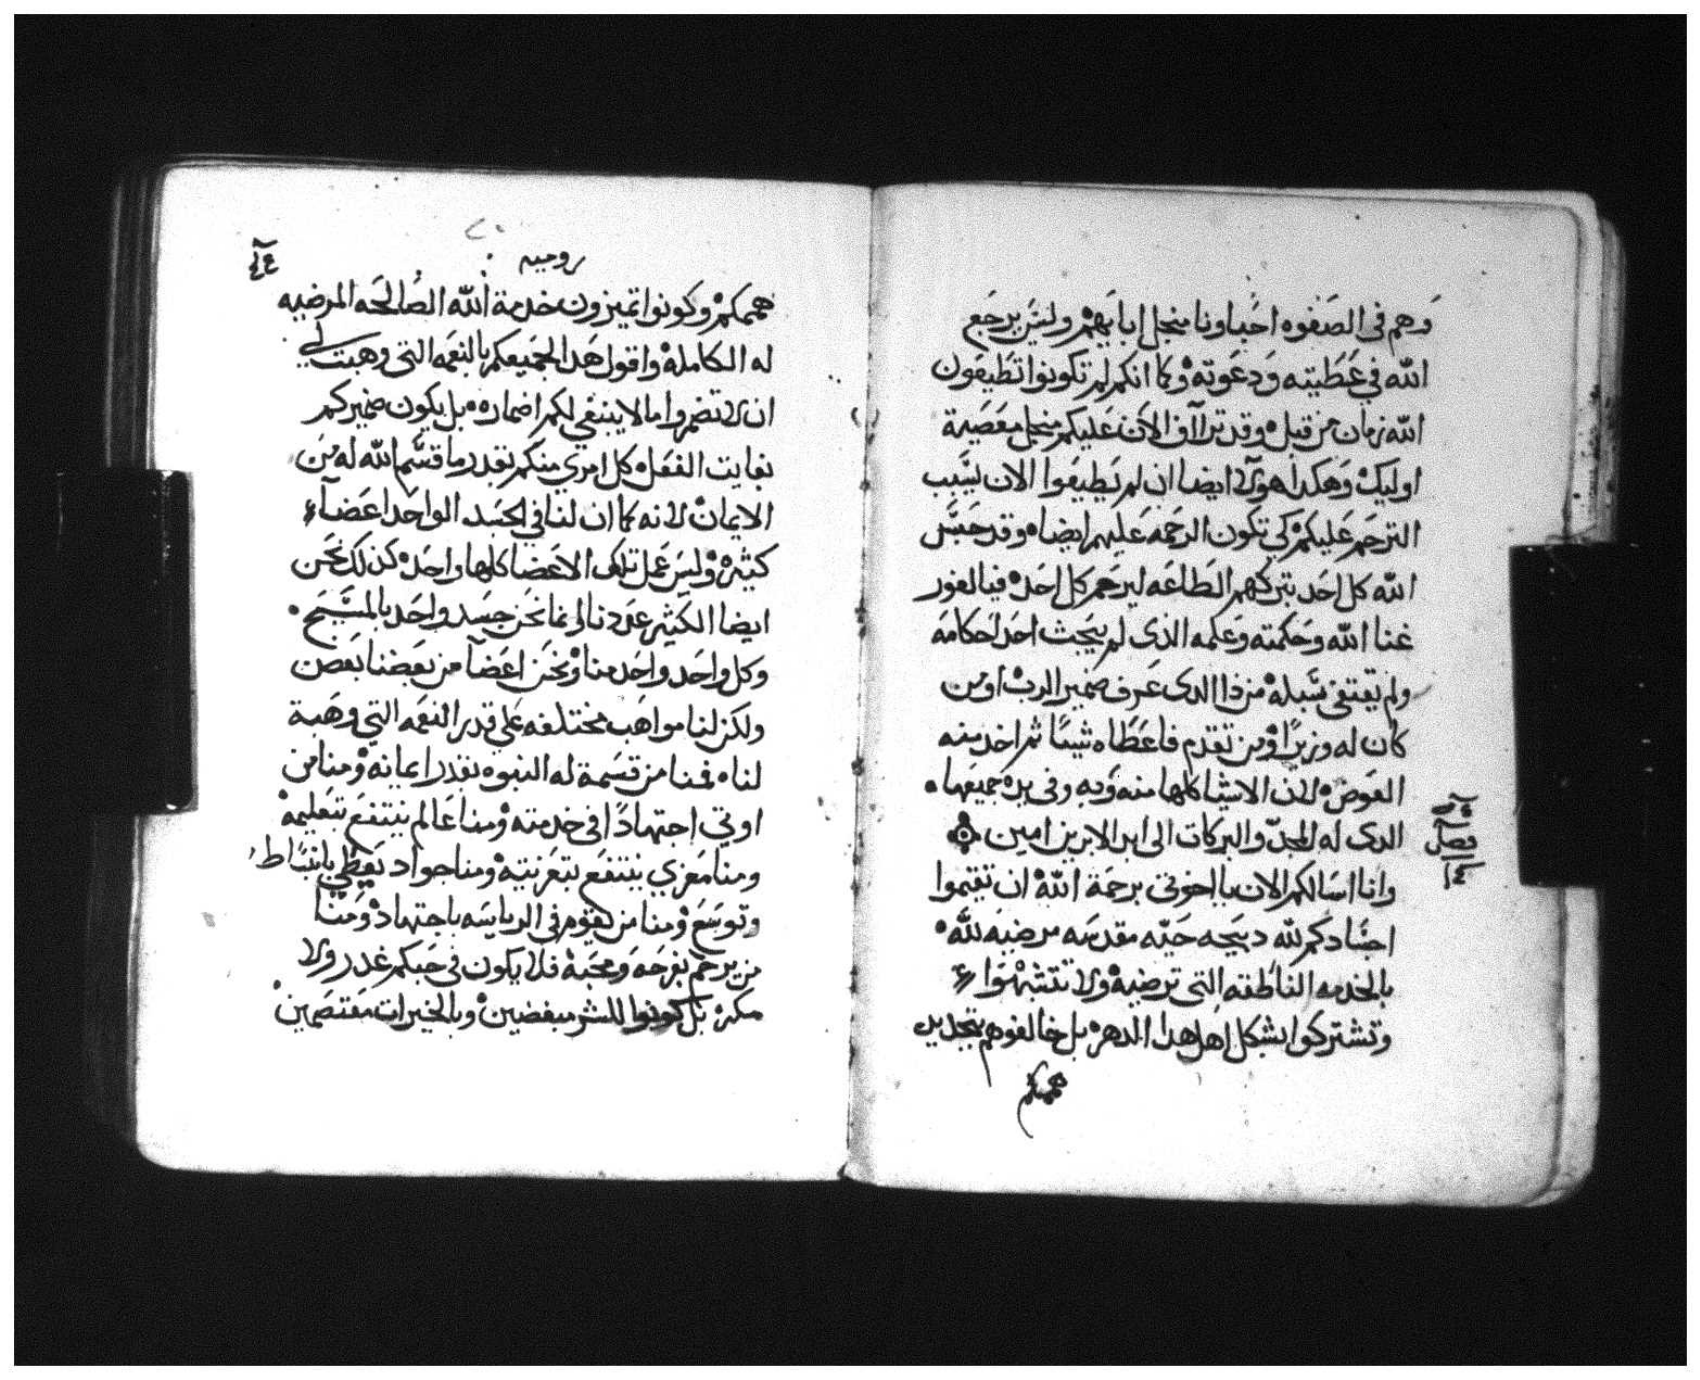 وهم في الصفوه احباونا منجل اباييهم وليس يرجع
الله في عطيته ودعوته وكما انكم لم تكونوا تطيعون
الله زمان من قبل وقد تراآف الان عليكم منجل معصية
اوليك وهكدا هولا ايضا ان لم يطيعوا الان بسبب
الترحم عليكم كي تكون الرحمه عليهم ايضا وقد حبس
الله كل احد بتركهم الطاعه ليرحم كل احد فيا لغور
غنا الله وحكمته وعلمه الذى لم يبحث احد احكامه
ولم يقتفى سبله من ذا الدى عرف ضمير الرب او من
كان له وزيرًا ومن تقدم فاعطاه شيئًا ثم اخد منه
العوض لان الاشيا كلها منه وبه وفى يده جميعها
الدى له المجد والبركات الى ابد الابدين امين
فصل
وانا اسالكم الان يا اخوتى برحمة الله ان تقيموا
اجسادكم لله دبيحه حيه مقدسه مرضيه لله
بالخدمه الناطقه التى ترضيه ولا تتشبهوا
وتشتركوا بشكل اهل هدا الدهر بل خالفوهم بتجديد
هممكم
روميه
هممكم وكونوا تميزون خدمة الله الصالحه المرضيه
له الكامله واقول هدا لجميعكم بالنعمه التى وهبت لي
ان لا تضمروا ما لا ينبغي لكم اضماره بل يكون ضميركم
بغايت الفعل كل امري منكم بقدر ما قسم الله له من
الايمان لانه كما ان لنا في الجسد الواحد اعضآء
كثيره وليس عمل تلك الاعضا كلها واحد كذلك نحن
ايضا الكثير عددنا انما نحن جسد واحد بالمسيح
وكل واحد واحد منا ونحن اعضآ من بعضنا بعض
ولكن لنا مواهب مختلفه على قدر النعمه التي وهبة
لنا فمنا من قسمة له النبوه بقدر ايمانه ومنا من
اوتي اجتهادًا في خدمته ومنا عالم ينتفع بتعليمه
ومنا معزي ينتفع بتعزيته ومنا جواد يعطي بانبساط
وتوسع ومنا من يقوم في الرياسه باجتهاد ومنا
من يرحم بفرحه ومحبة فلا يكون في حبكم غدر ولا
مكر بل كونوا للشر مبغضين وبالخيرات معتصمين